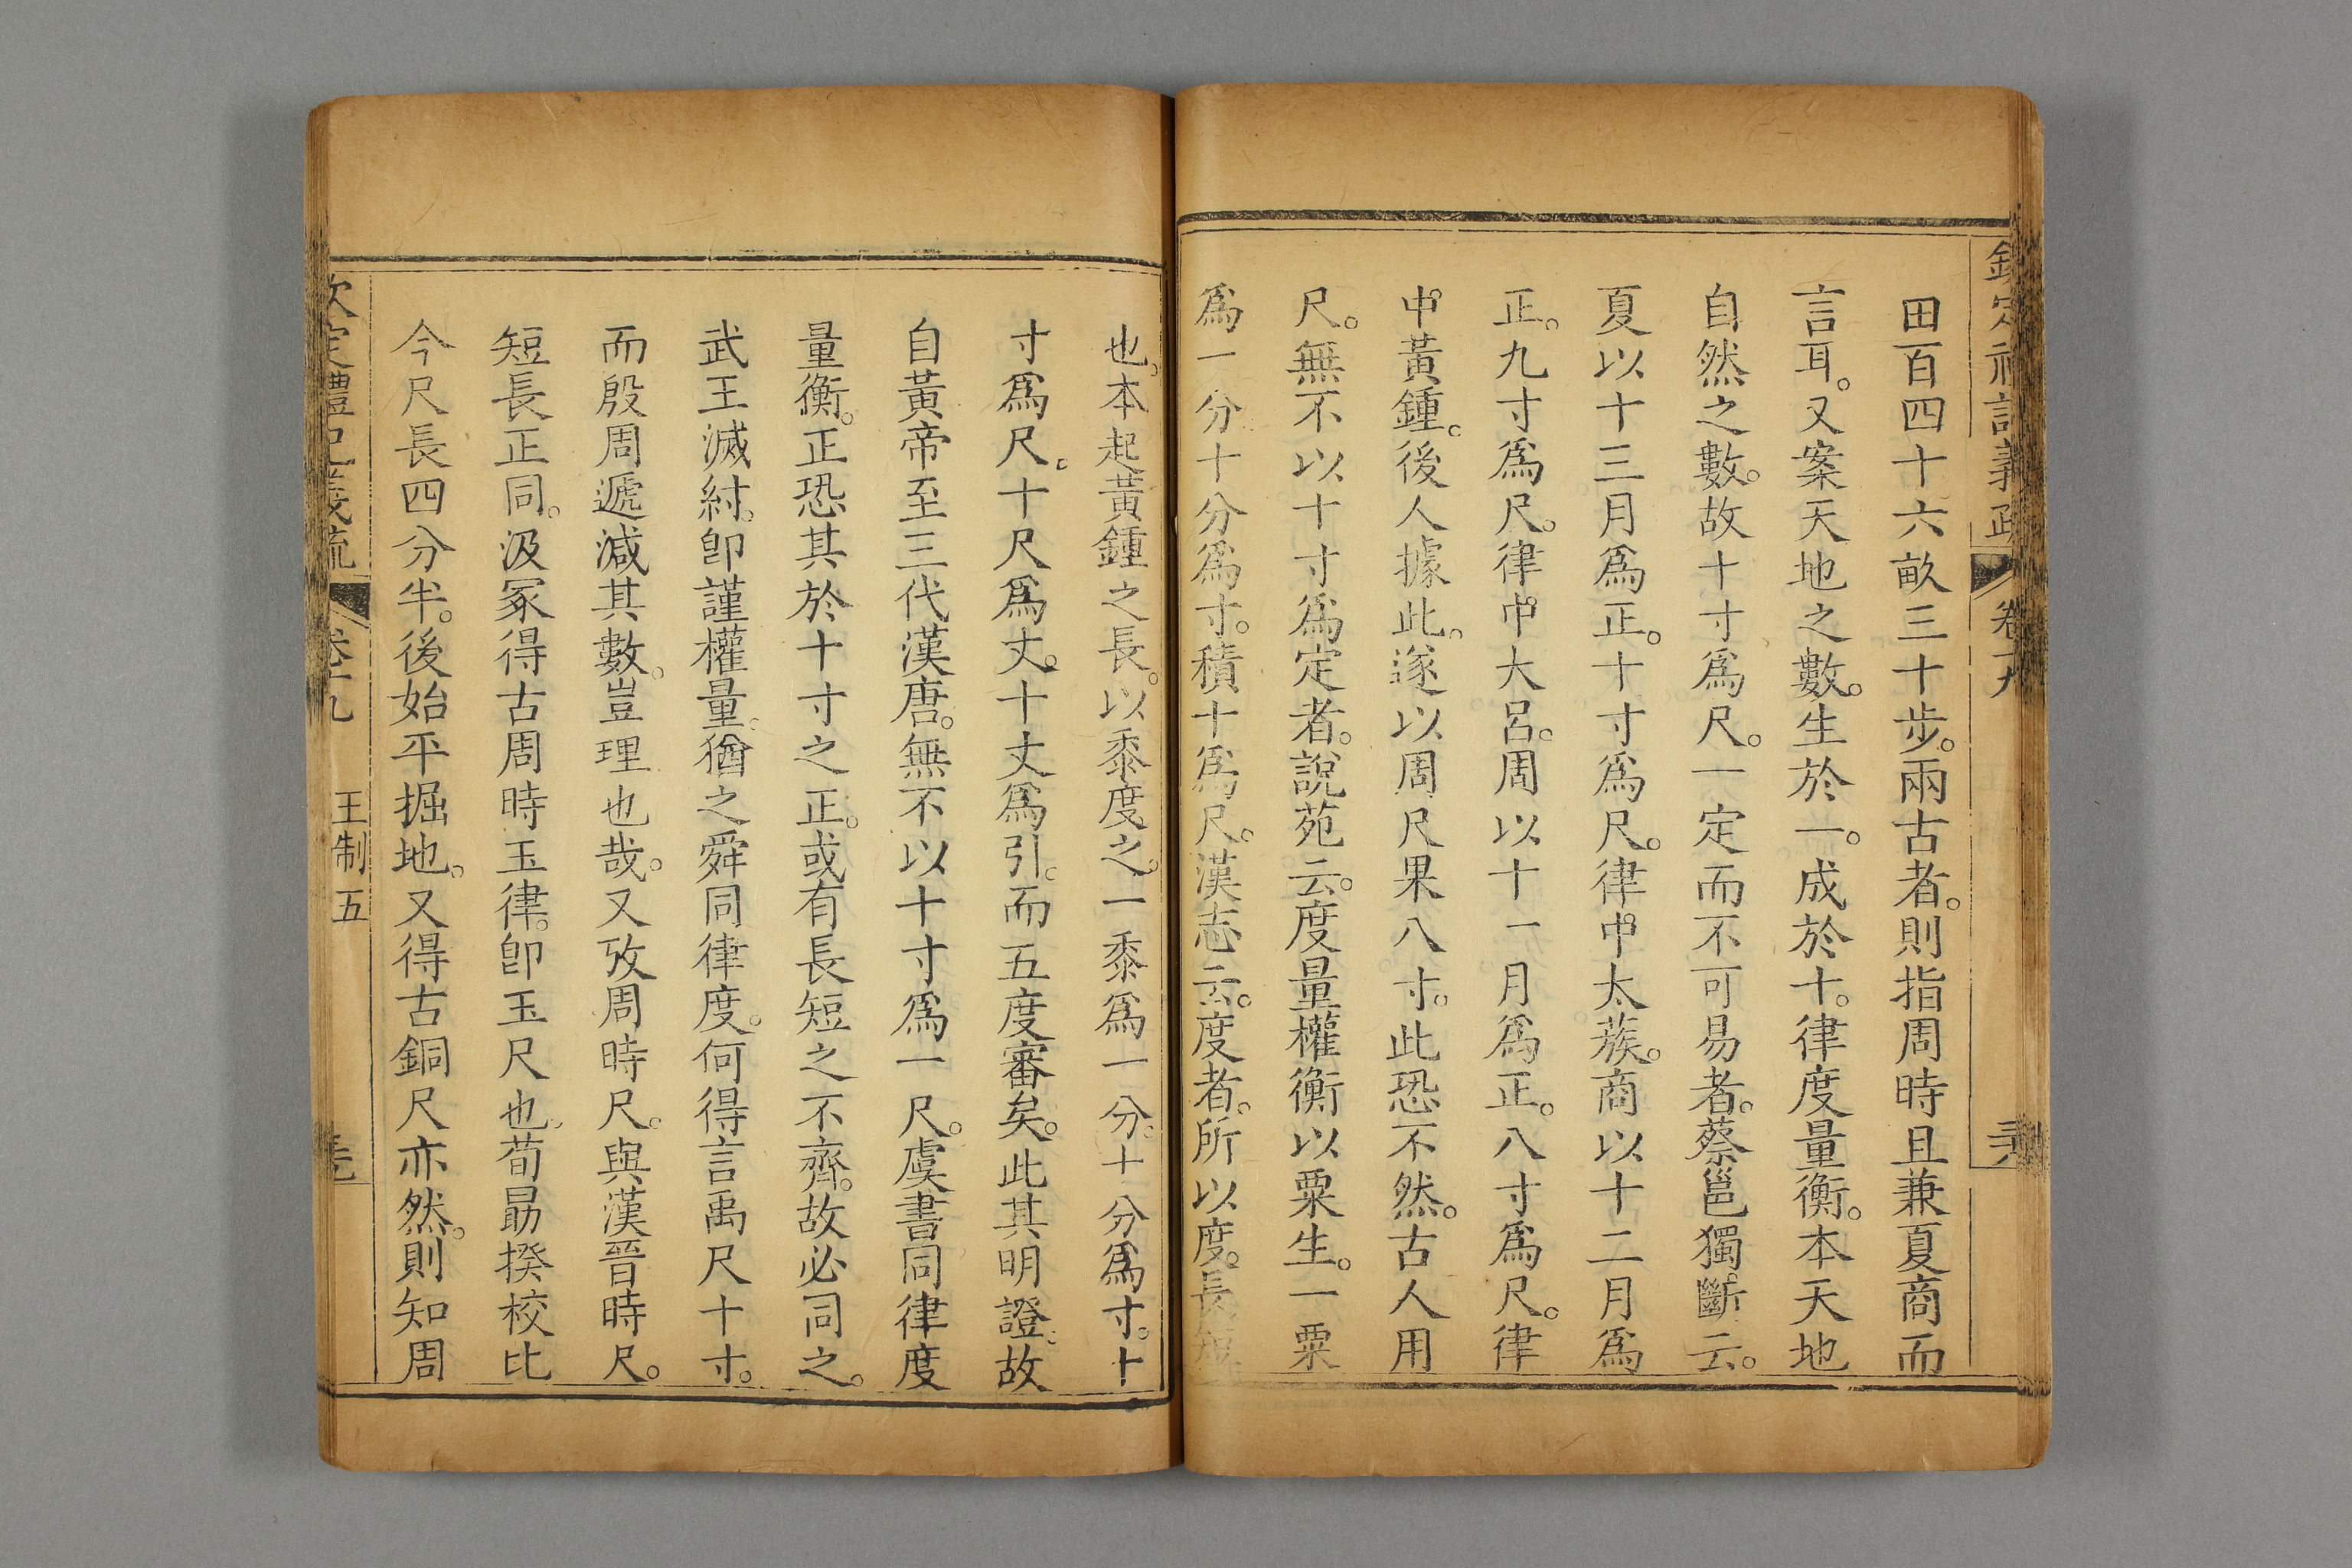 田百四十六畝三十步。兩古者。則指周時且兼夏商而
言耳。又案天地之數。生於一。成於十。律度量衡。本天地
自然之數。故十寸爲尺。一定而不可易者。蔡邕獨斷云。
夏以十三月爲正。十寸爲尺。律中太蔟。商以十二月爲
正。九寸爲尺。律中大呂。周以十一月爲正。八寸爲尺。律
中黃鍾。後人據此。遂以周尺果八寸。此恐不然。古人用
尺。無不以十寸爲定者。說苑云。度量權衡以粟生。一粟
爲一分。十分爲寸。積十爲尺。漢志云。度者。所以度。長短
也。本起黃鍾之長。以黍度之。一黍爲一分。十分爲寸。十
寸爲尺。十尺爲丈。十丈爲引。而五度審矣。此其明證。故
自黃帝至三代漢唐。無不以十寸爲一尺。虞書同律度
量衡。正恐其於十寸之正。或有長短之不齊。故必同之。
武王滅紂。卽謹權量。猶之舜同律度。何得言禹尺十寸。
而殷周遞減其數。豈理也哉。又攷周時尺。與漢晉時尺。
短長正同。汲冢得古周時玉律。卽玉尺也。荀勗揆校比
今尺長四分半。後始平掘地。又得古銅尺亦然。則知周
欽定禮記義疏 卷十九 王制五